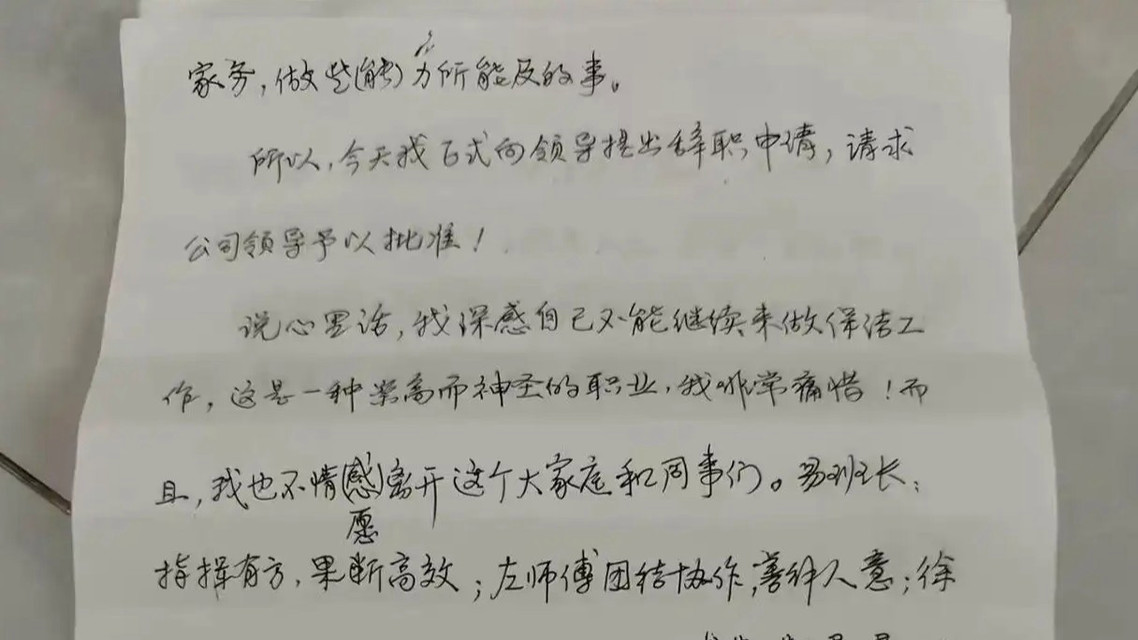 家务，做些(能)力所能及的事。
所以，今天我正式向领导提出辞职申请，请求
公司领导予以批准！
说心里话，我深感自己不能继续来做保洁工
作，这是一种崇高而神圣的职业，我非常痛惜！而
且，我也不情(感)愿离开这个大家庭和同事们。易班长：
指挥有方，果断高效；左师傅团结协作，善解人意；徐